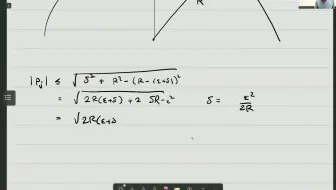 R
|P_j| ≤ √(δ² + R² - (R - (ε+δ))²)
= √(2R(ε+δ) + 2 δR - ε²) δ = ε²/2R
= √2R(ε+δ